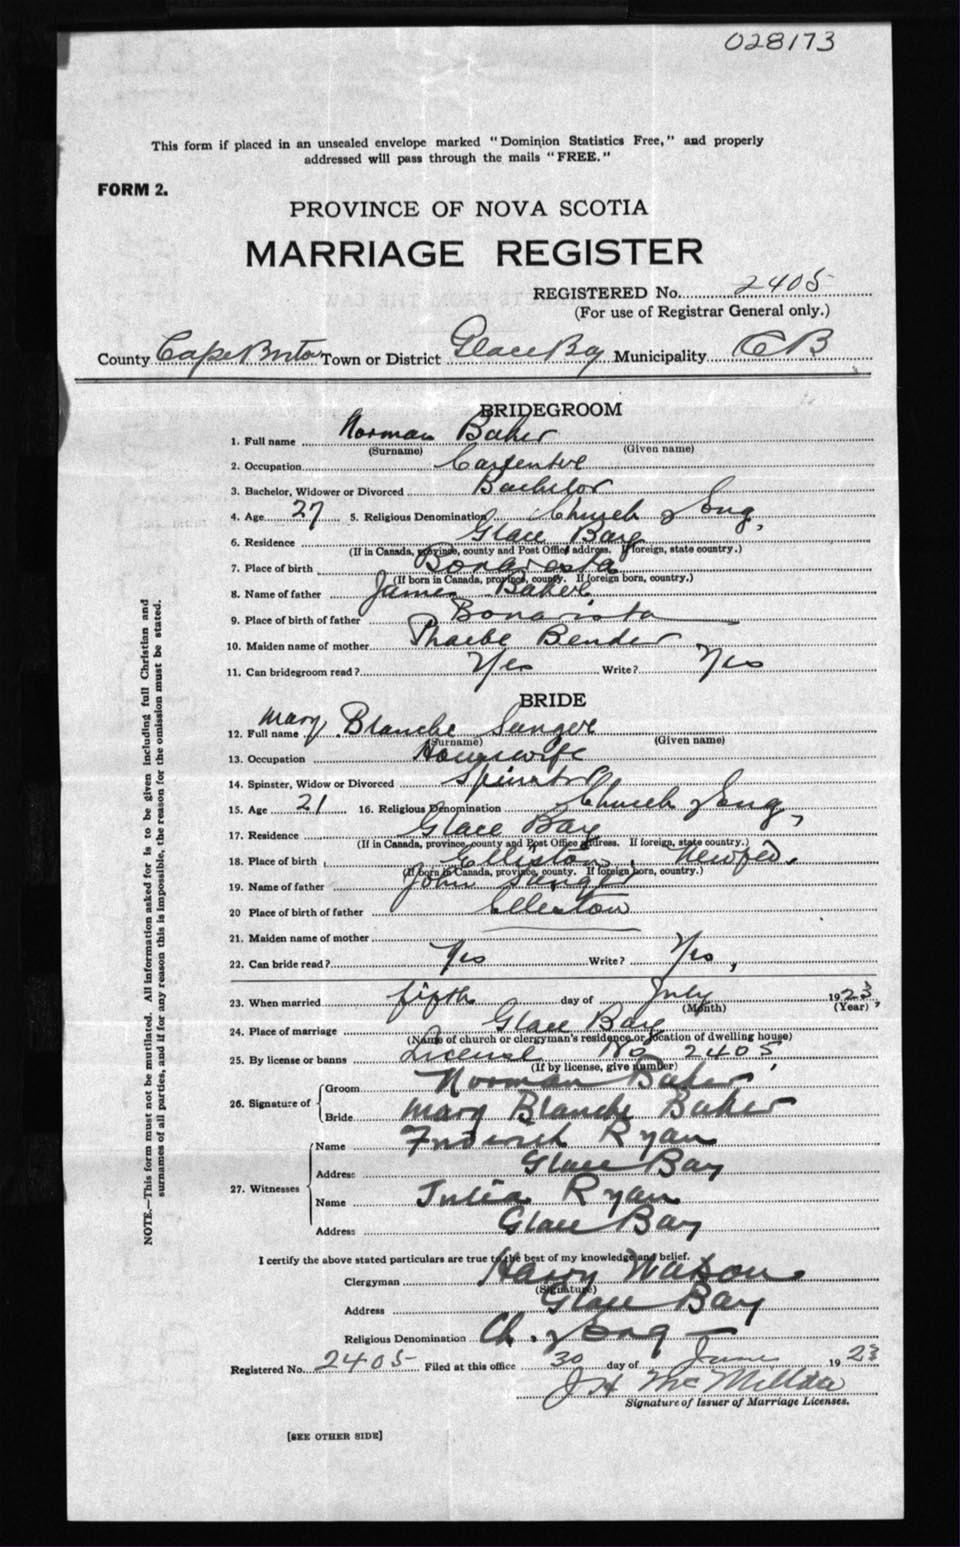 028173
This form if placed in an unsealed envelope marked "Dominion Statistics Free," and properly
addressed will pass through the mails "FREE."
FORM 2.
PROVINCE OF NOVA SCOTIA
MARRIAGE REGISTER
REGISTERED No. 2405
(For use of Registrar General only.)
County Cape Breton Town or District Glace Bay Municipality CB
BRIDEGROOM
1. Full name Norman Baker
(Surname) (Given name)
2. Occupation Carpenter
3. Bachelor, Widower or Divorced Bachelor
4. Age 27 5. Religious Denomination Church of Eng,
6. Residence Glace Bay
(If in Canada, province, county and Post Office address. If foreign, state country.)
7. Place of birth Bonavista
(If born in Canada, province, county. If foreign born, country.)
8. Name of father James Baker
9. Place of birth of father Bonavista
10. Maiden name of mother Phoebe Bender
11. Can bridegroom read? Yes Write? Yes
BRIDE
12. Full name Mary Blanche Sanger
(Surname) (Given name)
13. Occupation Housewife
14. Spinster, Widow or Divorced Spinster
15. Age 21 16. Religious Denomination Church of Eng,
17. Residence Glace Bay
(If in Canada, province, county and Post Office address. If foreign, state country.)
18. Place of birth Elliston, Newfld.
(If born in Canada, province, county. If foreign born, country.)
19. Name of father John
20 Place of birth of father Elleston
21. Maiden name of mother
22. Can bride read? Yes Write? Yes,
23. When married fifth day of July 1923,
(Month) (Year)
24. Place of marriage Glace Bay
(Name of church or clergyman's residence or location of dwelling house)
25. By license or banns License No 2405,
(If by license, give number)
26. Signature of
Groom Norman Baker
Bride Mary Blanche Baker
27. Witnesses
Name Frederick Ryan
Address Glace Bay
Name Julia Ryan
Address Glace Bay
I certify the above stated particulars are true to the best of my knowledge and belief.
Clergyman Harry Watson
(Signature)
Address Glace Bay
Religious Denomination Ch. of Eng
Registered No. 2405 Filed at this office 30 day of June 1923
J H McMillan
Signature of Issuer of Marriage Licenses.
[SEE OTHER SIDE]
NOTE.—This form must not be mutilated. All information asked for is to be given including full Christian and
surnames of all parties, and if for any reason this is impossible, the reason for the omission must be stated.